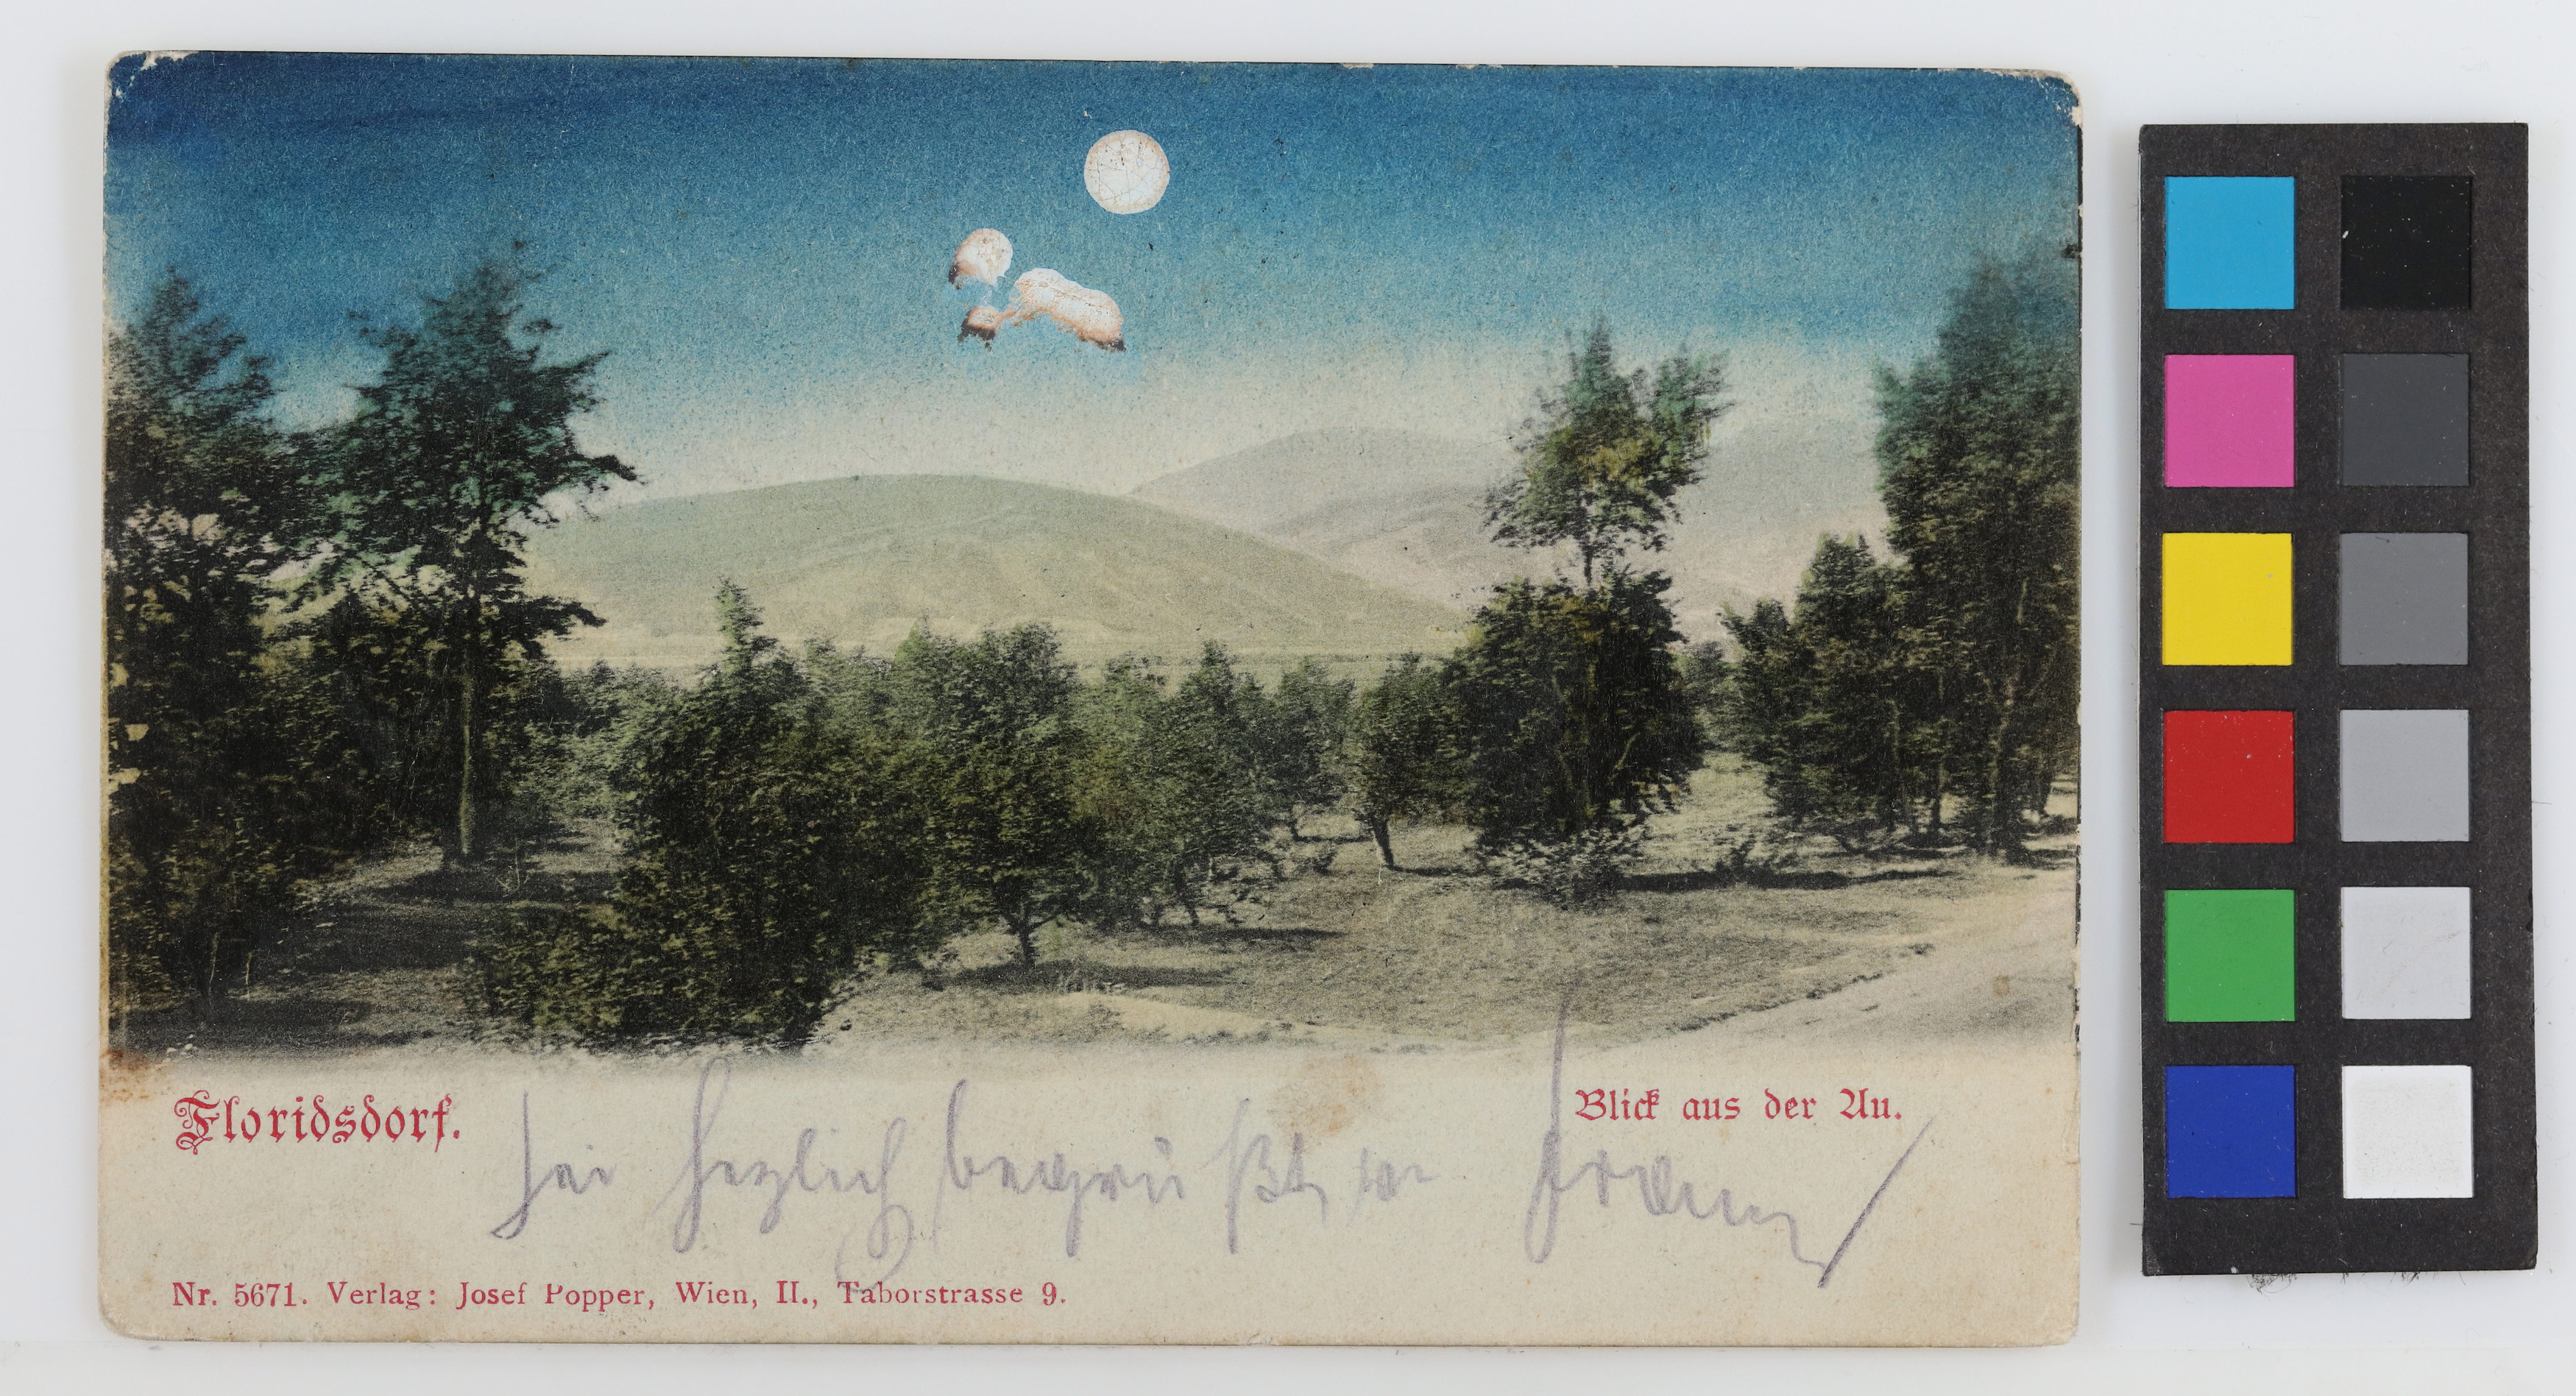 Floridsdorf.
Blick aus der Au.
sei herzlich begrüßt
Nr. 5671. Verlag: Josef Popper, Wien, II., Taborstrasse 9.